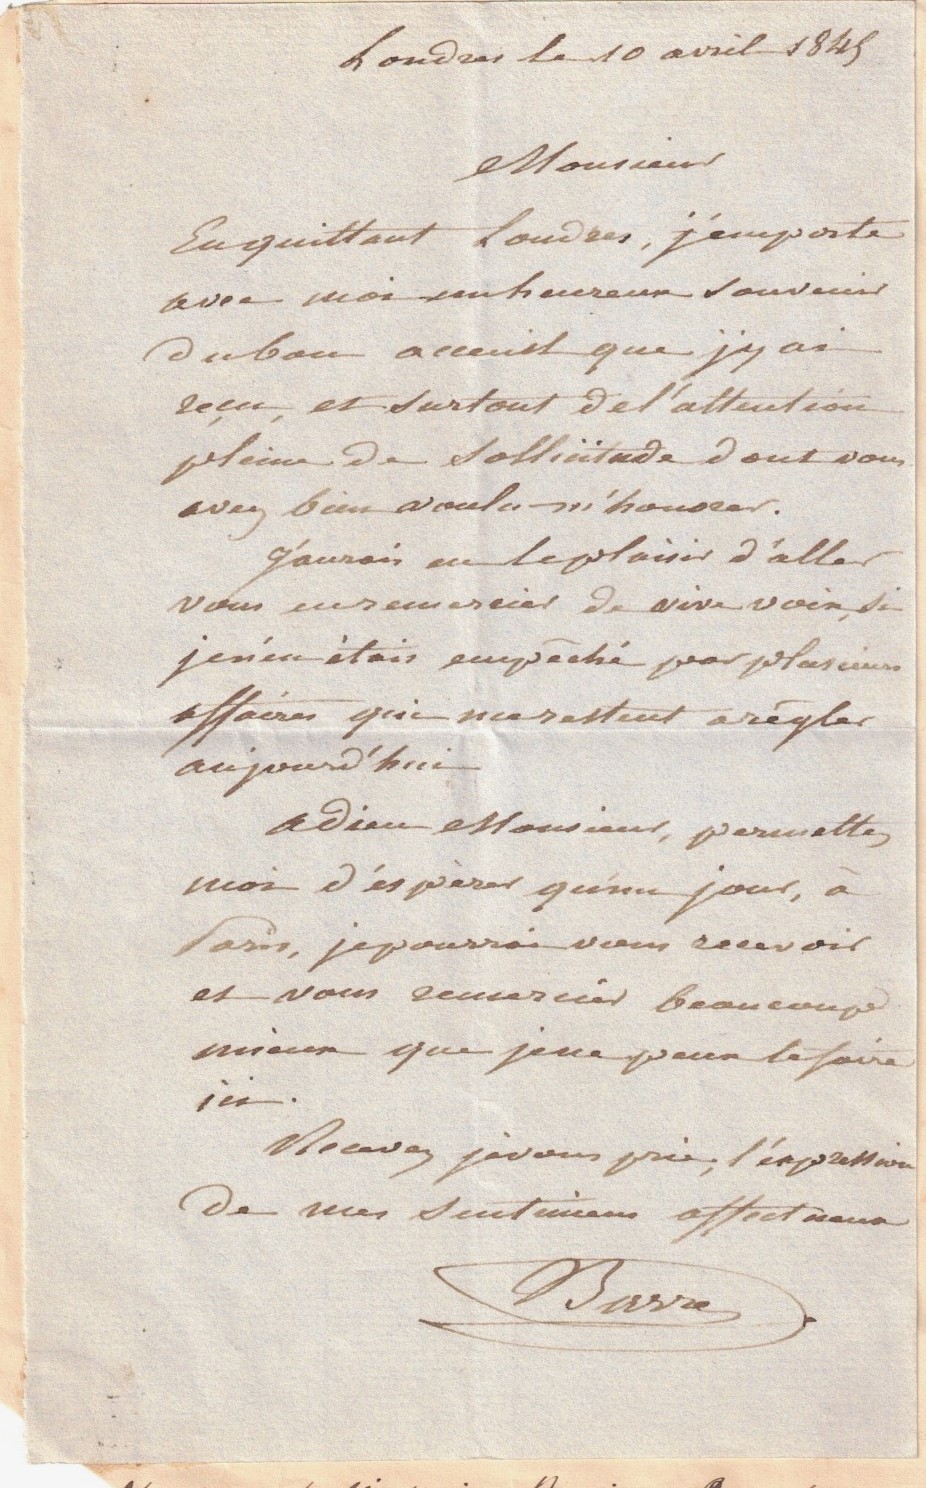 Londres le 10 avril 1845
Monsieur
En quittant Londres, j'emporte
avec moi un heureux souvenir
du bon accueil que j'y ai
reçu, et surtout de l'attention
pleine de sollicitude dont vous
avez bien voulu m'honorer.
J'aurais eu le plaisir d'aller
vous en remercier de vive voix, si
je n'en étais empêché par plusieurs
affaires qui me restent a régler
aujourd'hui
adieu Monsieur, permettez
moi d'espèrer qu'un jour, à
Paris, je pourrai vous recevoir
et vous remercier beaucoup
mieux que je ne peux le faire
ici.
Recevez je vous prie, l'expression
de mes sentimens affectueux
Barre